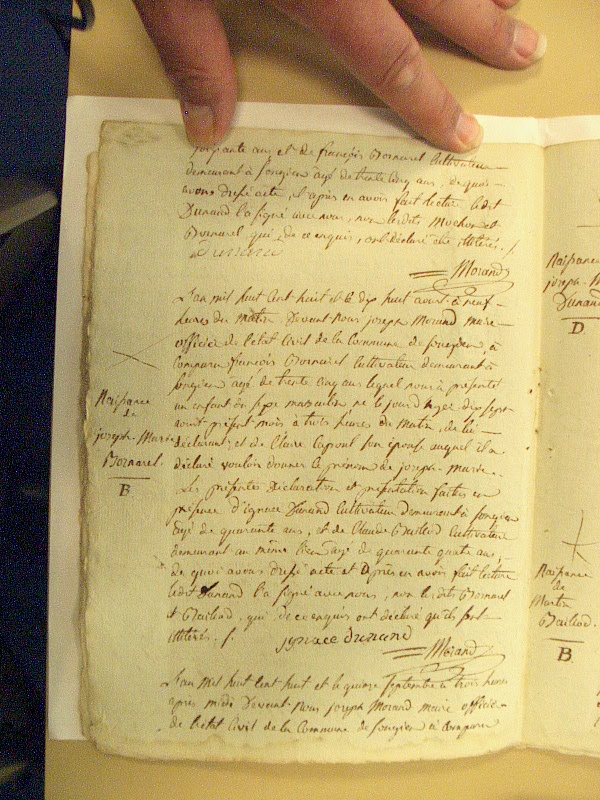 soixante ans et de françois Bornarel Cultivateur
demeurant à songieu agé de trente cinq ans, de quoi
avons dressé acte, et après en avoir fait lecture ledit
Dunand l'a signé avec nous, non lesdits Mochon et
Bornarel qui, de ce enquis, ont déclaré être illitérés. /.
Dunand
Morand
L'an mil huit cent huit et le dix huit aout à neuf
heures du matin. Devant nous joseph Morand maire
officier de l'état Civil de la Commune de songieu, à
comparu françois Bornarel Cultivateur demeurant à
songieu agé de trente cinq ans lequel nous à présenté
un enfant du sexe masculin né le jour d'hyer dix sept
aout présent mois à trois heures du matin, de lui
déclarant et de Claire Capoul son épouse auquel il a
déclaré vouloir donner le prénom de joseph-marie.
Les présentes déclaration et présentation faites en
présence d'ignace Dunand Cultivateur demeurant à songieu
agé de quarante ans, et de Claude Baillod Cultivateur
demeurant au même lieu agé de quarante quatre ans,
de quoi avons dressé acte et après en avoir fait lecture
ledit Dunand l'a signé avec nous, non lesdits Bornarel
et Baillod, qui de ce enquis ont déclaré qu'ils sont
illitérés. /.
ignace dunand
Morand
L'an mil huit cent huit et le quinze septembre à trois heures
après midi Devant nous joseph Morand maire officier
de l'état Civil de la Commune de songieu à comparu
Naissance
de
joseph-Marie
Bornarel.
B
Naissance
joseph-M
Dunand
D.
Naissance
de
Martin
Baillod.
B.